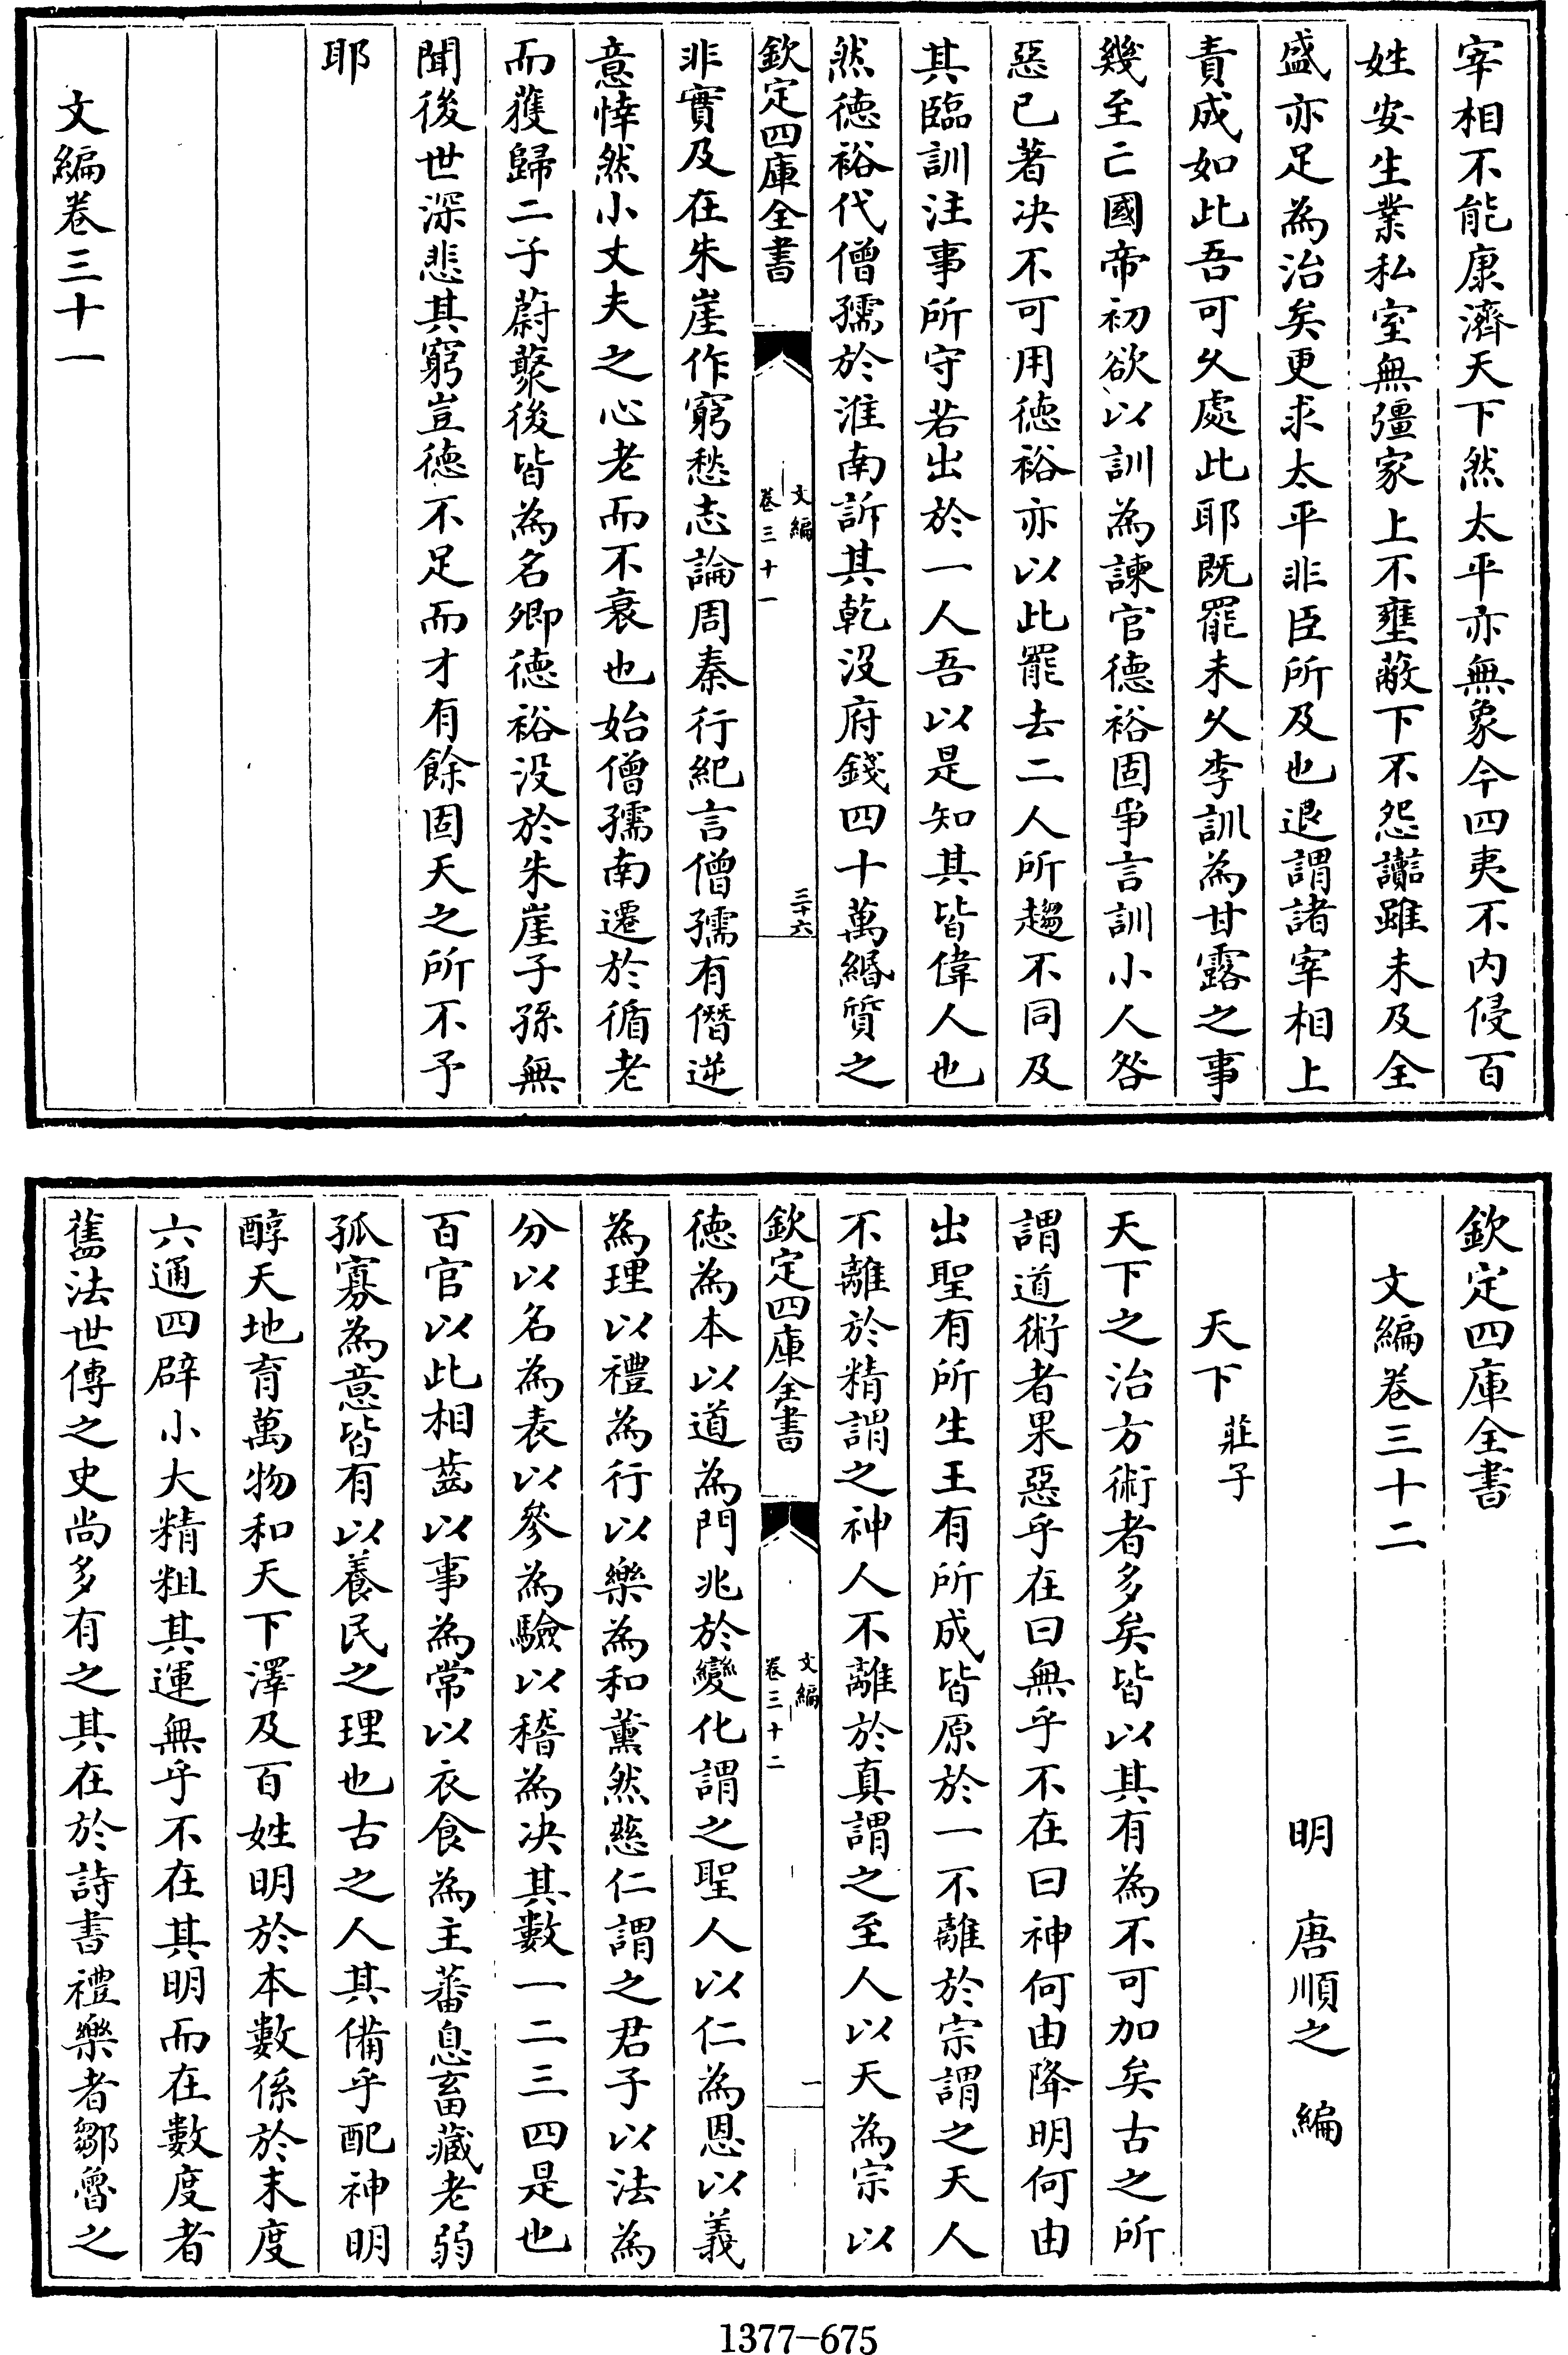 宰相不能康濟天下然太平亦無象今四夷不内侵百
姓安生業私室無彊家上不壅蔽下不怨讟雖未及全
盛亦足為治矣更求太平非臣所及也退謂諸宰相上
責成如此吾可久處此耶既罷未久李訓為甘露之事
幾至亡國帝初欲以訓為諫官德裕固爭言訓小人咎
惡已著决不可用德裕亦以此罷去二人所趨不同及
其臨訓注事所守若出於一人吾以是知其皆偉人也
然德裕代僧孺於淮南訴其乾没府錢四十萬緡質之
欽定四庫全書
文編
卷三十一
三十六
非實及在朱崖作窮愁志論周秦行紀言僧孺有僭逆
意悻然小丈夫之心老而不衰也始僧孺南遷於循老
而獲歸二子蔚藂後皆為名卿德裕没於朱崖子孫無
聞後世深悲其窮豈德不足而才有餘固天之所不予
耶
文編卷三十一
欽定四庫全書
文編卷三十二
明 唐順之 編
天下 莊子
天下之治方術者多矣皆以其有為不可加矣古之所
謂道術者果惡乎在曰無乎不在曰神何由降明何由
出聖有所生王有所成皆原於一不離於宗謂之天人
不離於精謂之神人不離於真謂之至人以天為宗以
欽定四庫全書
文編
卷三十二
一
德為本以道為門兆於變化謂之聖人以仁為恩以義
為理以禮為行以樂為和薰然慈仁謂之君子以法為
分以名為表以參為驗以稽為决其數一二三四是也
百官以此相齒以事為常以衣食為主蕃息畜藏老弱
孤寡為意皆有以養民之理也古之人其備乎配神明
醇天地育萬物和天下澤及百姓明於本數係於末度
六通四辟小大精粗其運無乎不在其明而在數度者
舊法世傳之史尚多有之其在於詩書禮樂者鄒魯之
1377-675